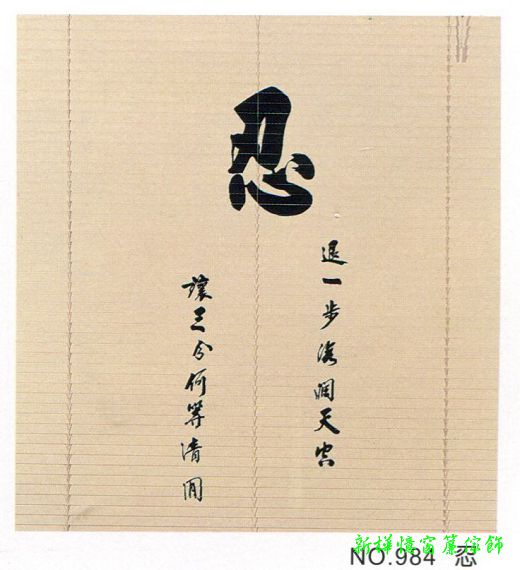 忍
退一步海闊天空
讓三分何等清閒
窗簾傢飾
NO.984 忍